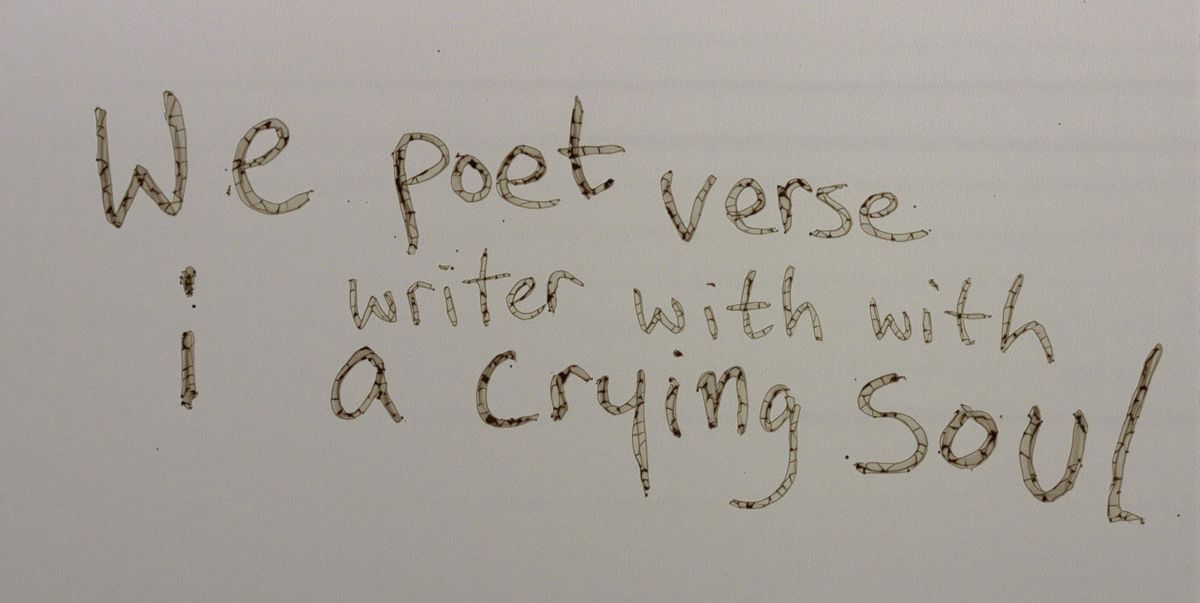 We poet verse
writer with with
i a crying soul